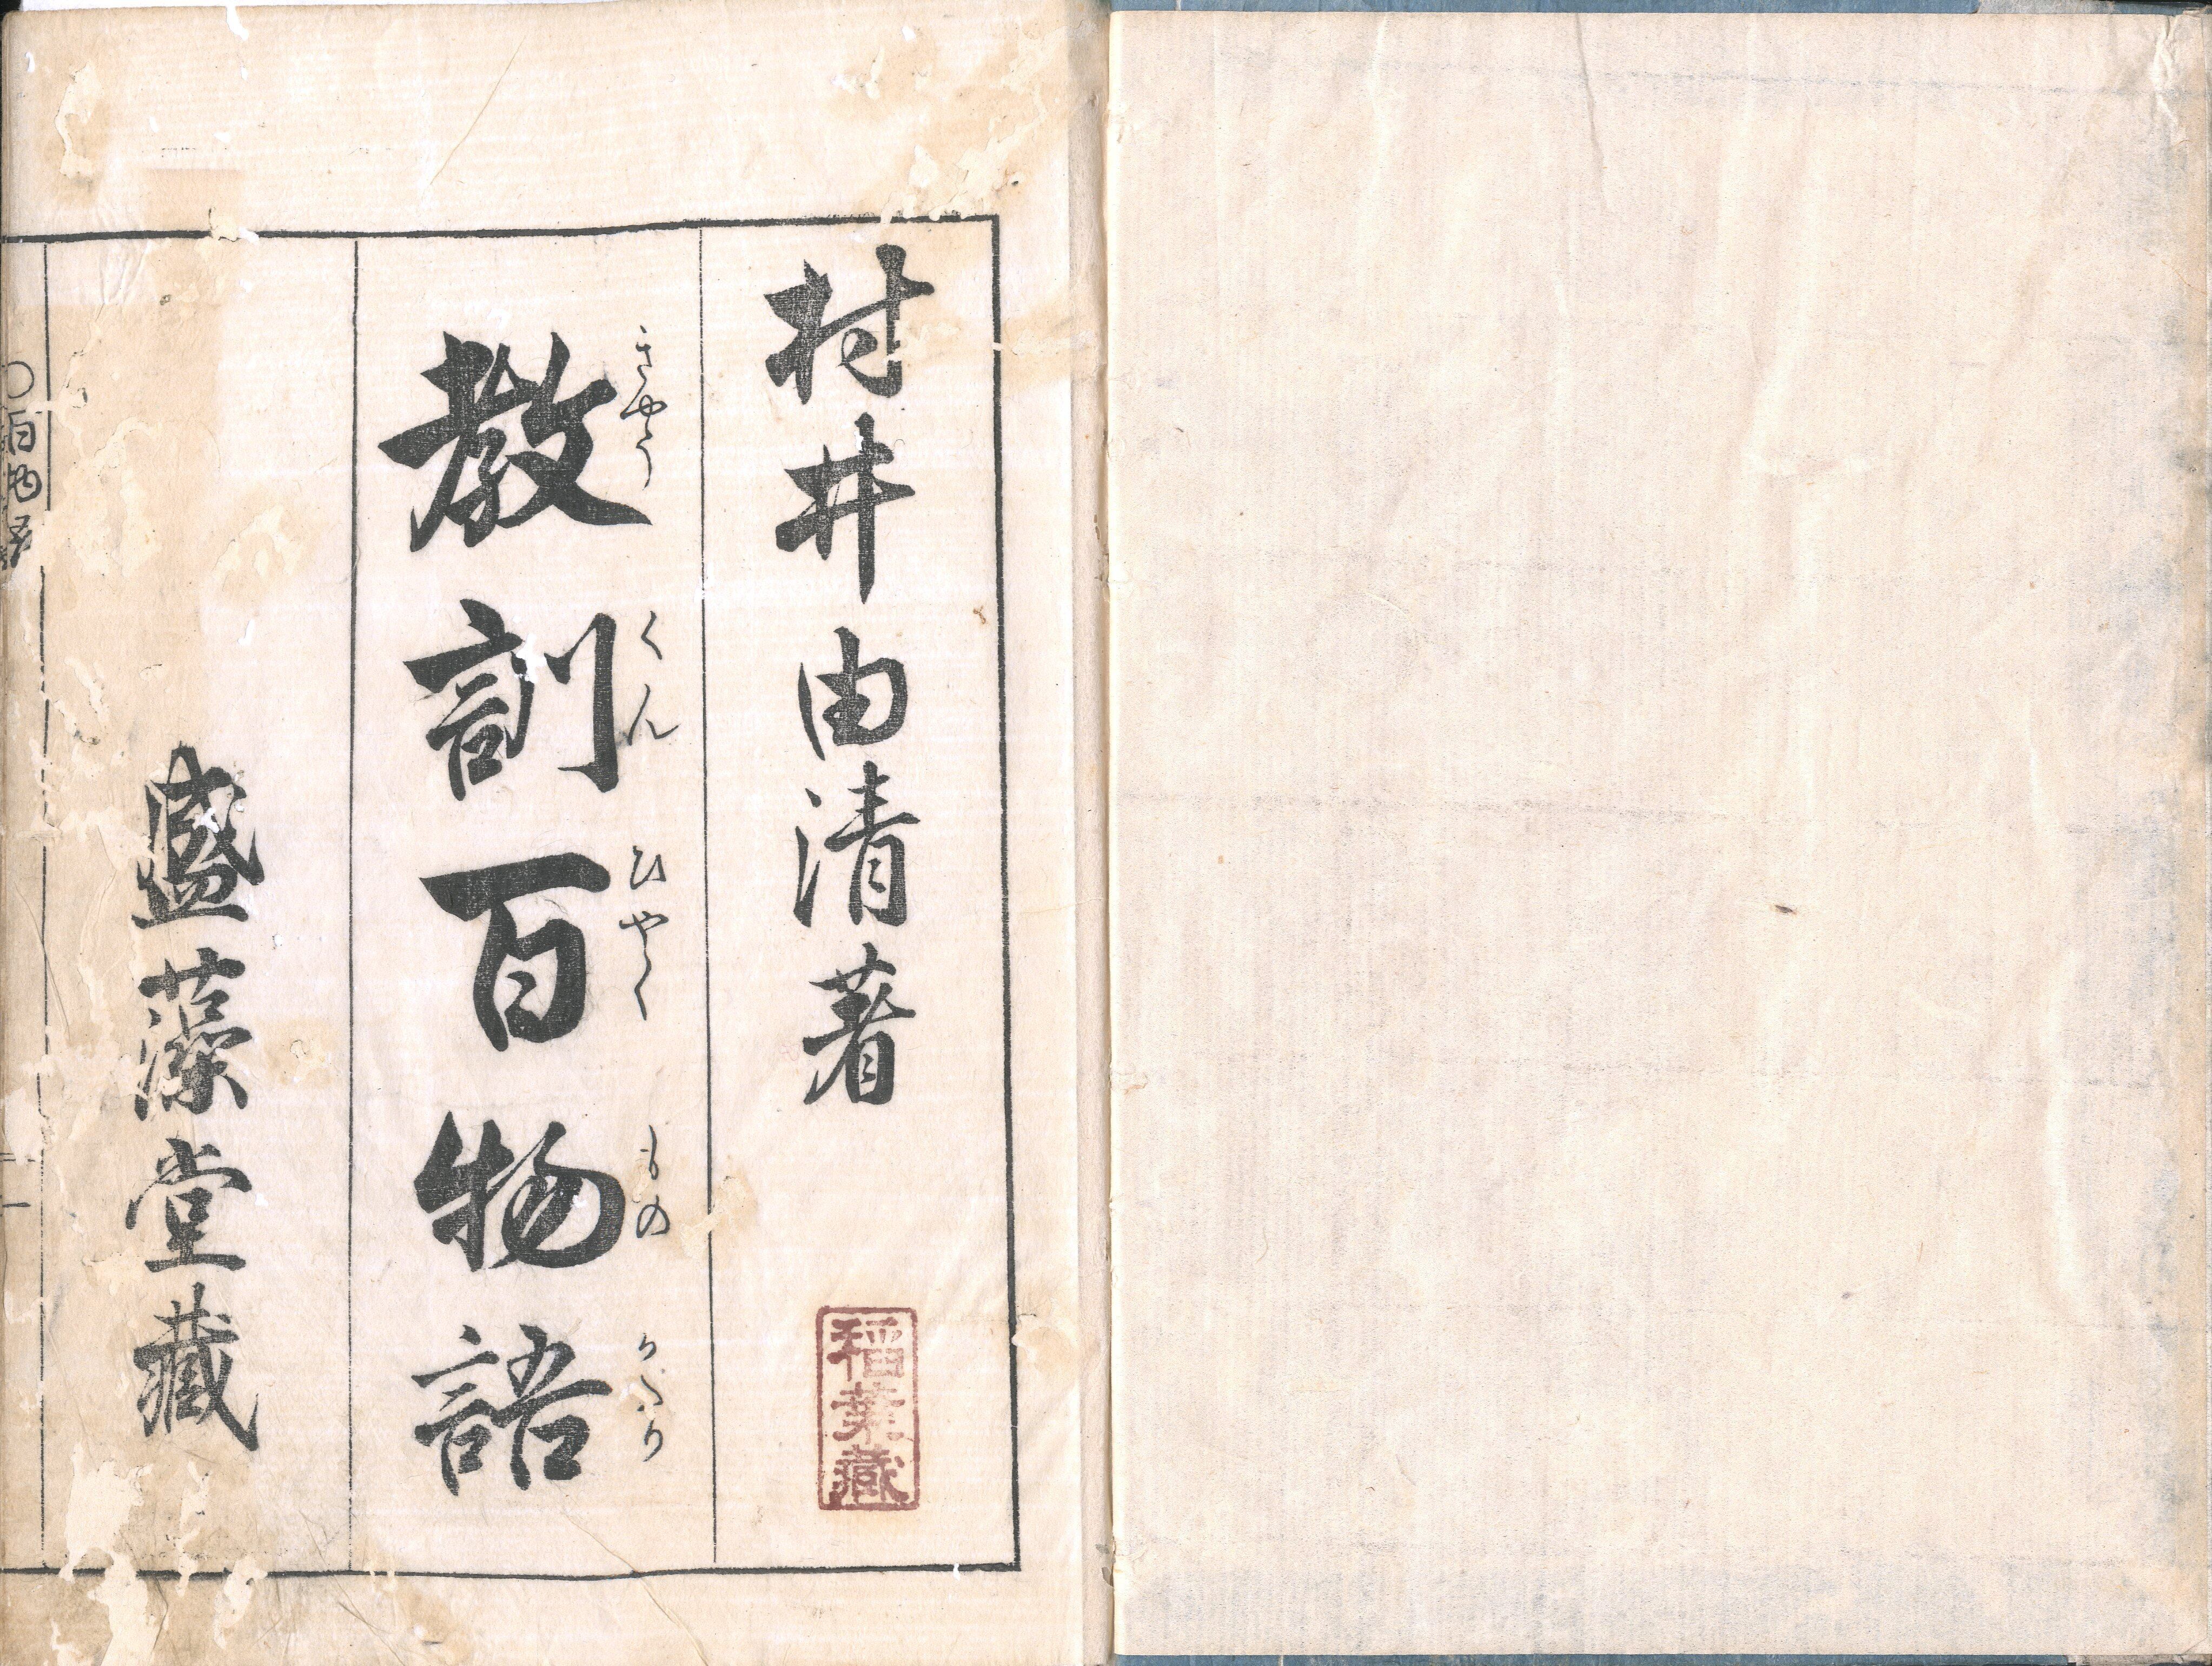 村井由清著
稲葉藏
きやうくんひやくものがたり
教訓百物語
盛藻堂藏
〇百物語
一